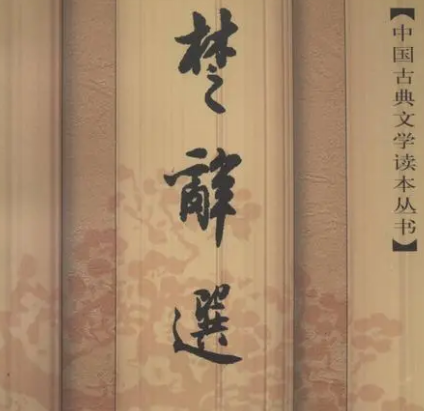 楚辭選
【中国古典文学读本丛书】